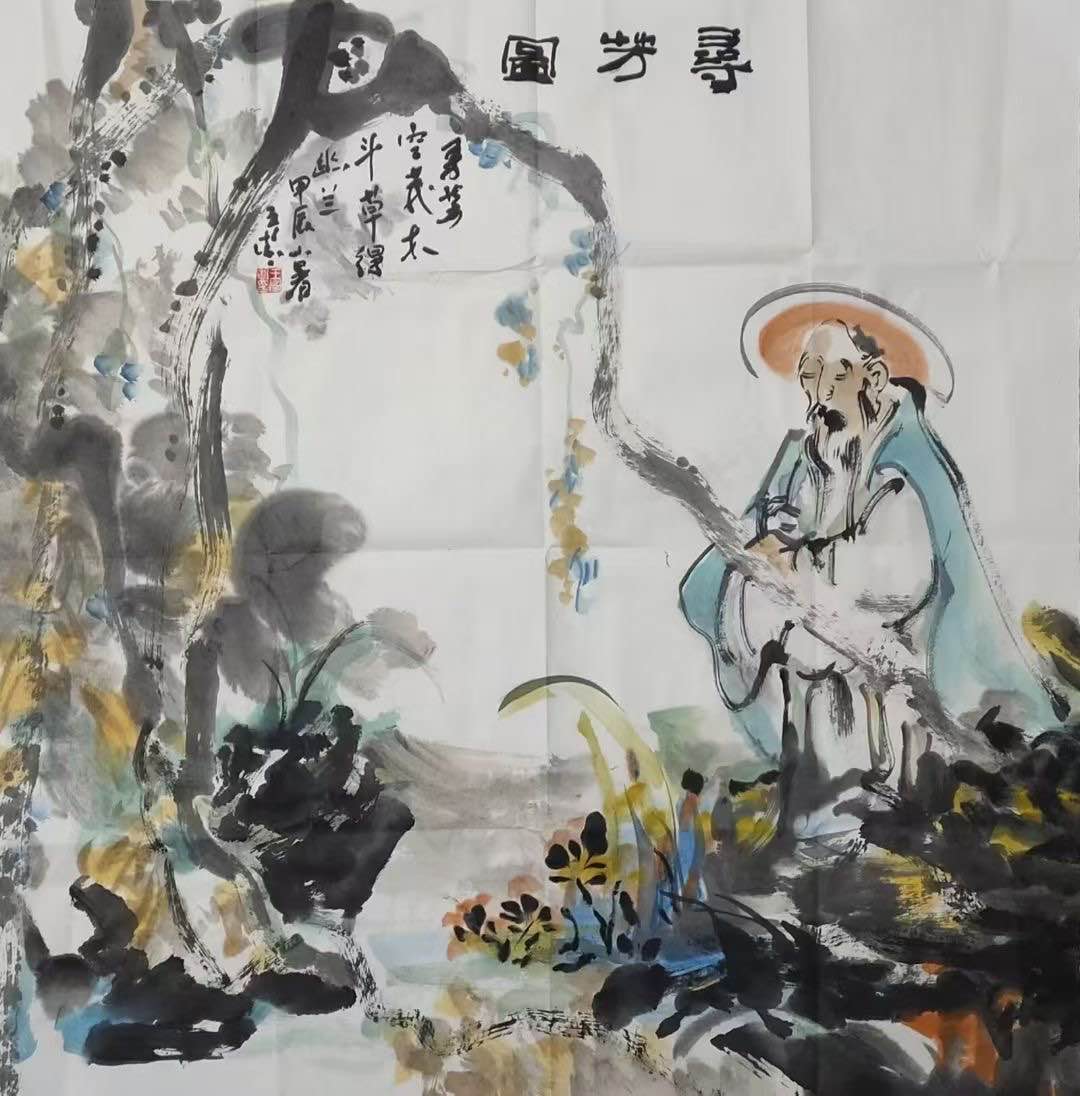 尋芳圖
寻芳
空茂木
斗草得
幽兰
甲辰小暑